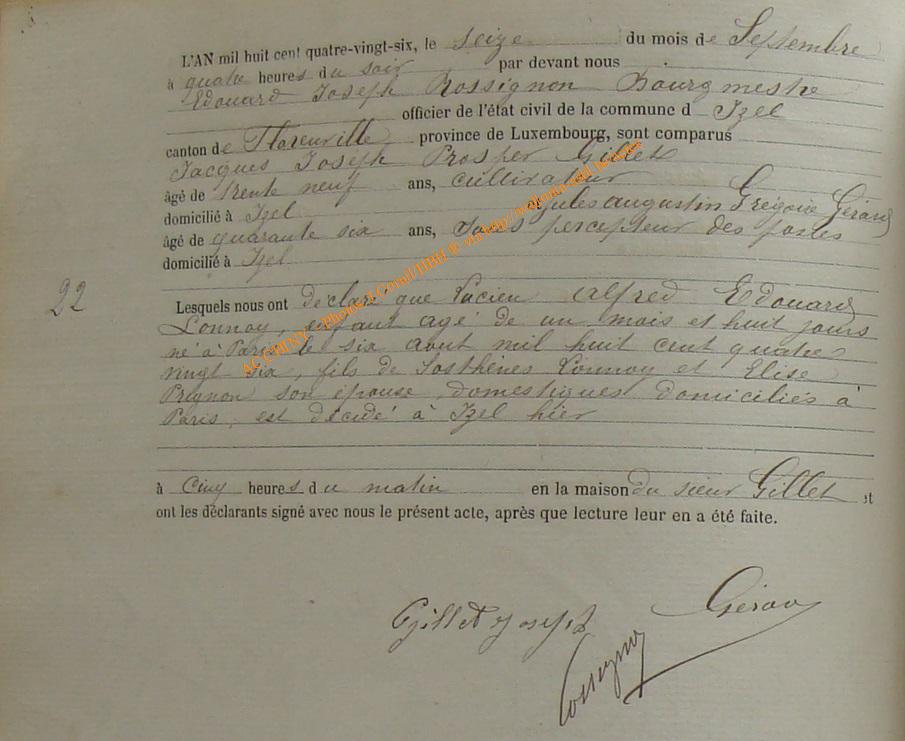 L'AN mil huit cent quatre-vingt-six, le seize du mois de Septembre
à quatre heures du soir par devant nous
Edouard Joseph Rossignon Bourgmestre
officier de l'état civil de la commune d Izel
canton de Florenville province de Luxembourg, sont comparus
Jacques Joseph Prosper Gillet
âgé de trente neuf ans, cultivateur
domicilié à Izel Jules Augustin Grégoire Gérard
âgé de quarante six ans, sous percepteur des postes
domicilié à Izel
22
Lesquels nous ont déclaré que Lucien Alfred Edouard
Lonnoy, enfant agé de un mois et huit jours
né à Paris le six aout mil huit cent quatre
vingt six, fils de Sosthènes Lonnoy et Elise
Prignon son épouse, domestiques domiciliés à
Paris, est décédé à Izel hier
à cinq heures du matin en la maison du sieur Gillet et
ont les déclarants signé avec nous le présent acte, après que lecture leur en a été faite.
Gillet Joseph
Gérard
Rossignon